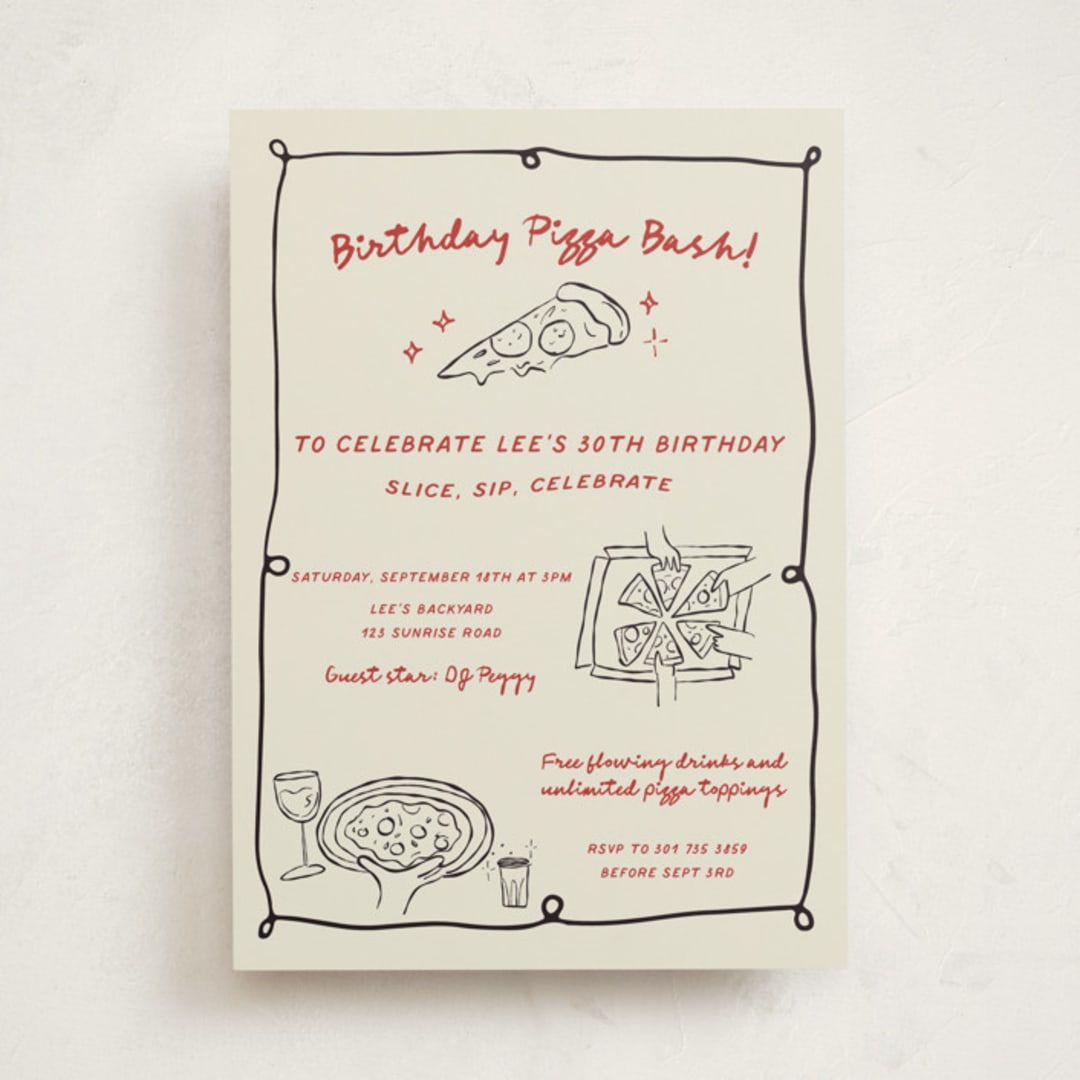 Birthday Pizza Bash!
TO CELEBRATE LEE'S 30TH BIRTHDAY
SLICE, SIP, CELEBRATE
SATURDAY, SEPTEMBER 18TH AT 3PM
LEE'S BACKYARD
123 SUNRISE ROAD
Guest star: DJ Peggy
Free flowing drinks and
unlimited pizza toppings
RSVP TO 301 735 3859
BEFORE SEPT 3RD